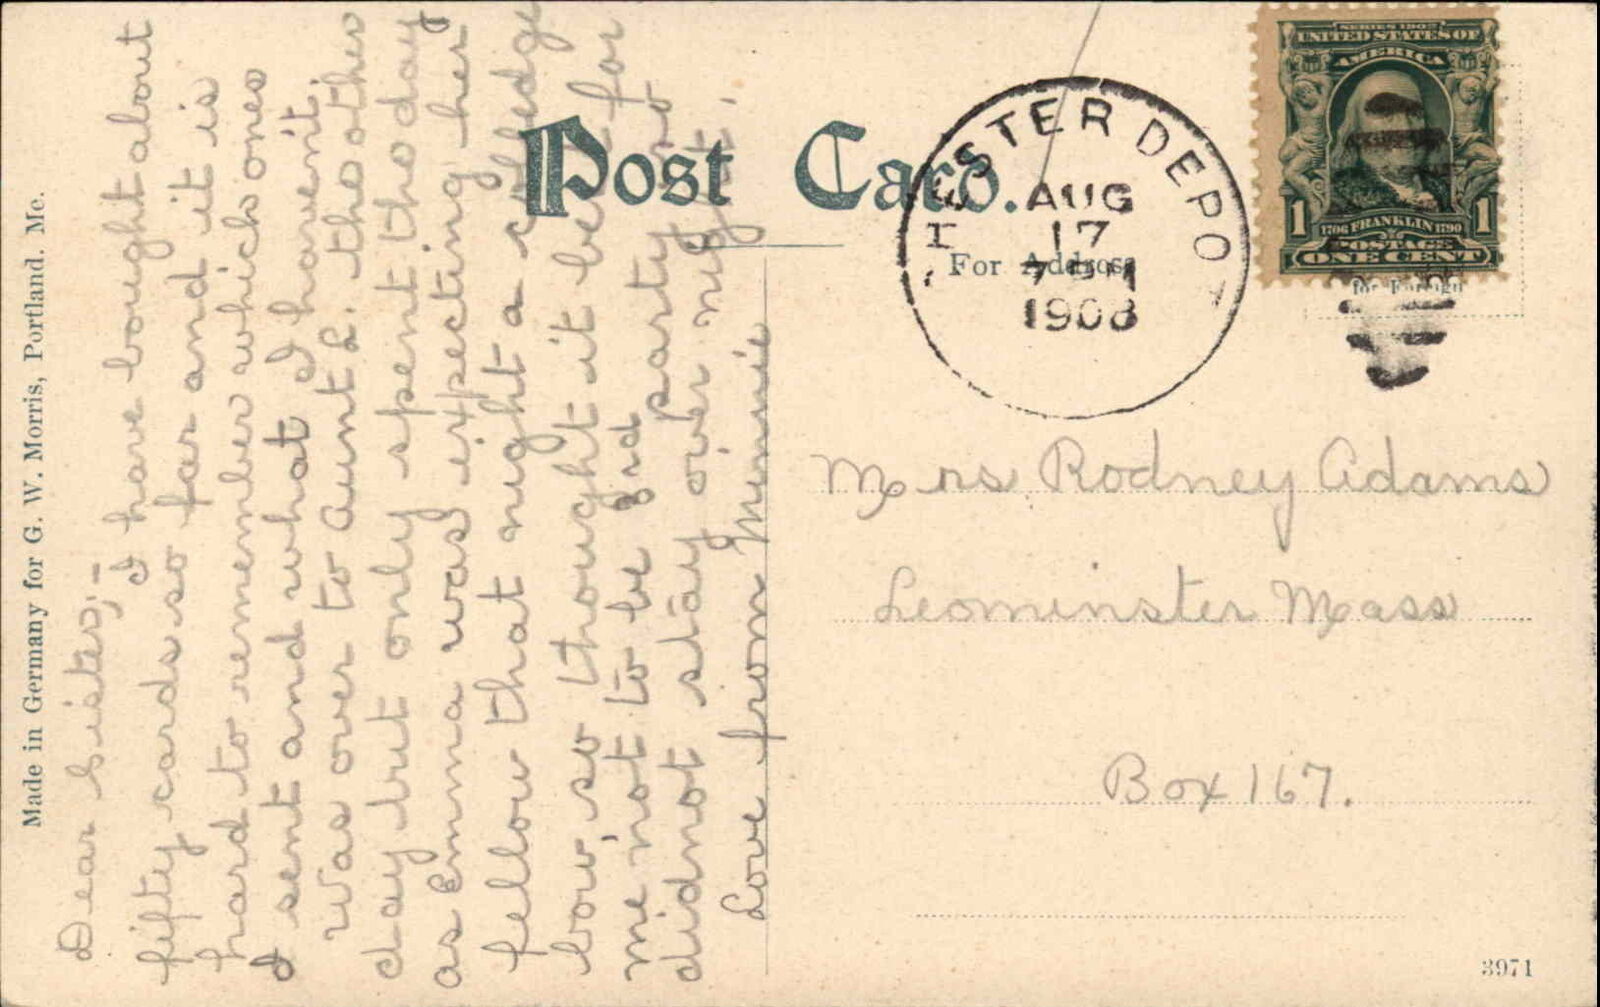 Made in Germany for G. W. Morris, Portland. Me.
Dear Sister;-
I have bought about
fifty cards so far and it is
hard to remember which ones
I sent and what I havent.
Was over to Aunt L. the other
day but only spent the day
as Emma was expecting her
fellow that night a colledge
bow, so thought it best for
me not to be 3rd party so
did not stay over night.
Love from Minnie
Post Card.
For Address
ESTER DEPOT
AUG
17
1908
SERIES 1902
UNITED STATES OF
AMERICA
1 1706 FRANKLIN 1790 1
POSTAGE
ONE CENT
for Foreign
Mrs Rodney Adams
Leominster Mass
Box 167.
3971